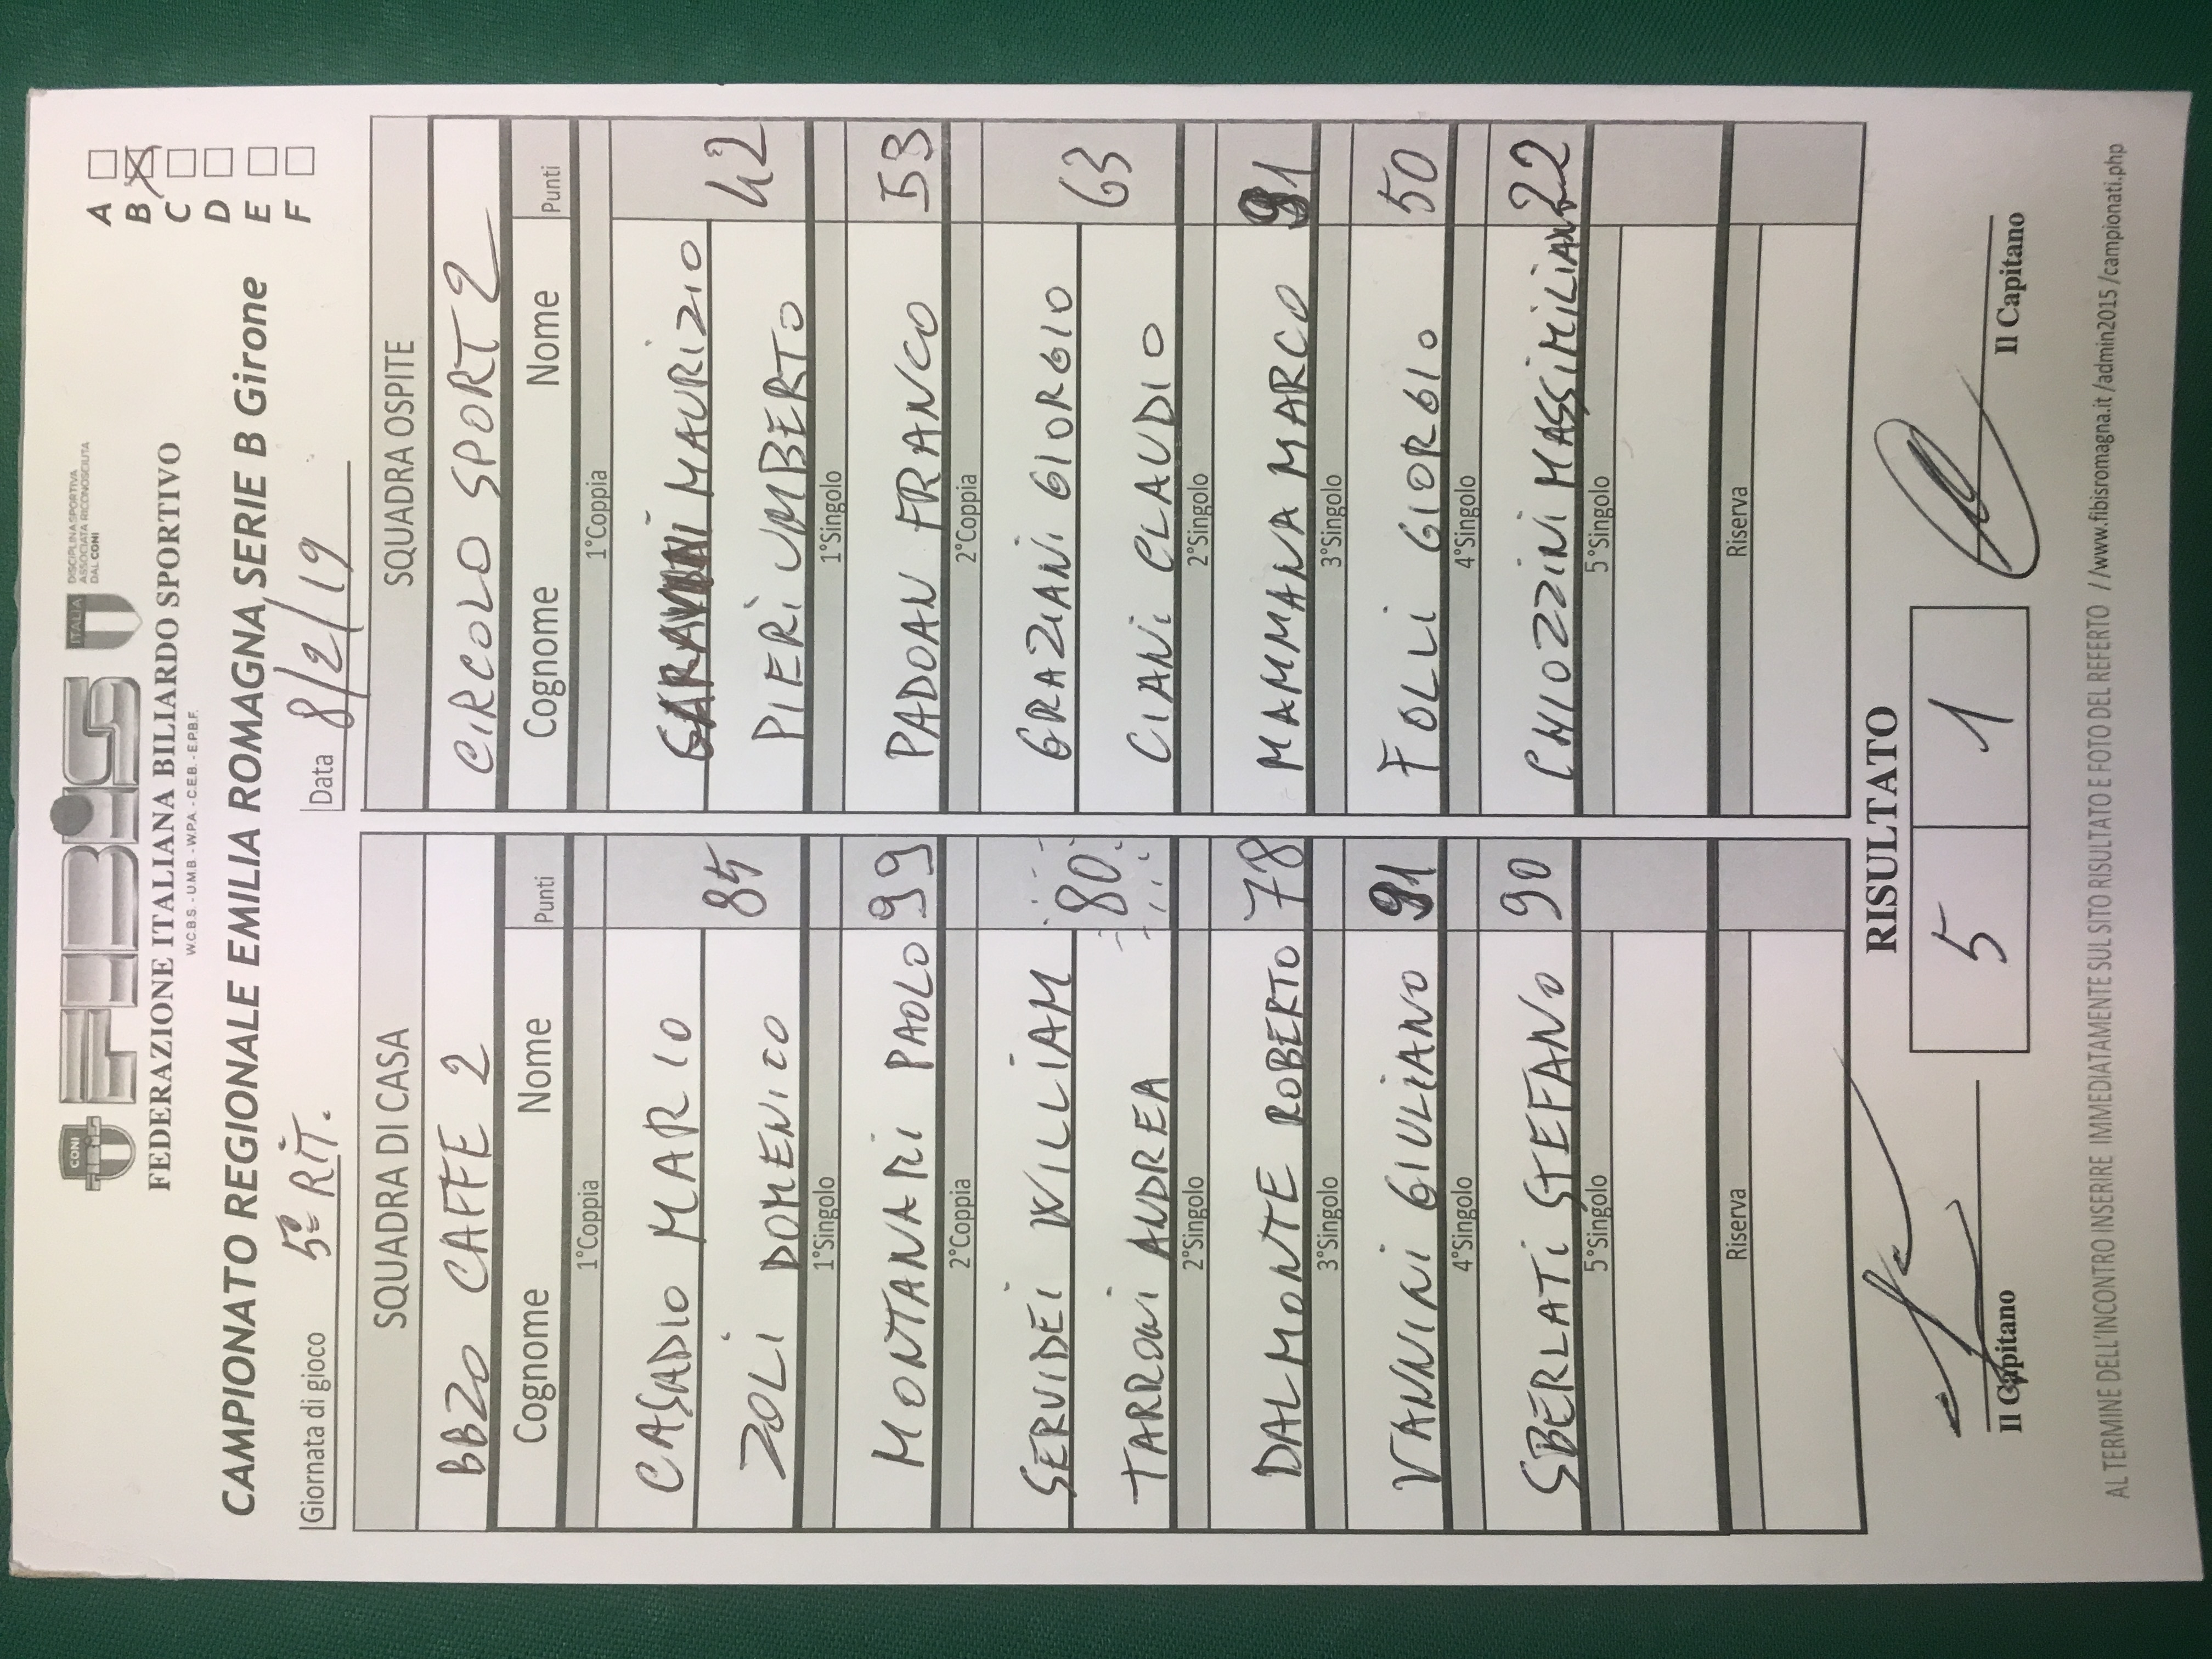 CONI
FIBiS
ITALIA
DISCIPLINA SPORTIVA
ASSOCIATA RICONOSCIUTA
DAL CONI
FEDERAZIONE ITALIANA BILIARDO SPORTIVO
W.C.B.S. - U.M.B. - W.P.A. - C.E.B. - E.P.B.F.
CAMPIONATO REGIONALE EMILIA ROMAGNA SERIE B Girone
A
B
C
D
E
F
Giornata di gioco 5ª RIT. Data 8/2/19
SQUADRA DI CASA SQUADRA OSPITE
BBZO CAFFE 2 CIRCOLO SPORT 2
Cognome Nome Punti Cognome Nome Punti
1°Coppia 1°Coppia
CASADIO MARIO MAURIZIO
ZOLI DOMENICO 84 PIERI UMBERTO 42
1°Singolo 1°Singolo
MONTANARI PAOLO 99 PADOAN FRANCO 53
2°Coppia 2°Coppia
SERVIDEI WILLIAM GRAZIANI GIORGIO
TARRONI ANDREA 80 CIANI CLAUDIO 63
2°Singolo 2°Singolo
DALMONTE ROBERTO 78 MAMMANA MARCO 91
3°Singolo 3°Singolo
VANNINI GIULIANO 91 FOLLI GIORGIO 50
4°Singolo 4°Singolo
SBERLATI STEFANO 90 CHIOZZINI MASSIMILIANO 22
5°Singolo 5°Singolo
Riserva Riserva
RISULTATO
5 1
Il Capitano Il Capitano
AL TERMINE DELL'INCONTRO INSERIRE IMMEDIATAMENTE SUL SITO RISULTATO E FOTO DEL REFERTO //www.fibisromagna.it /admin2015 /campionati.php